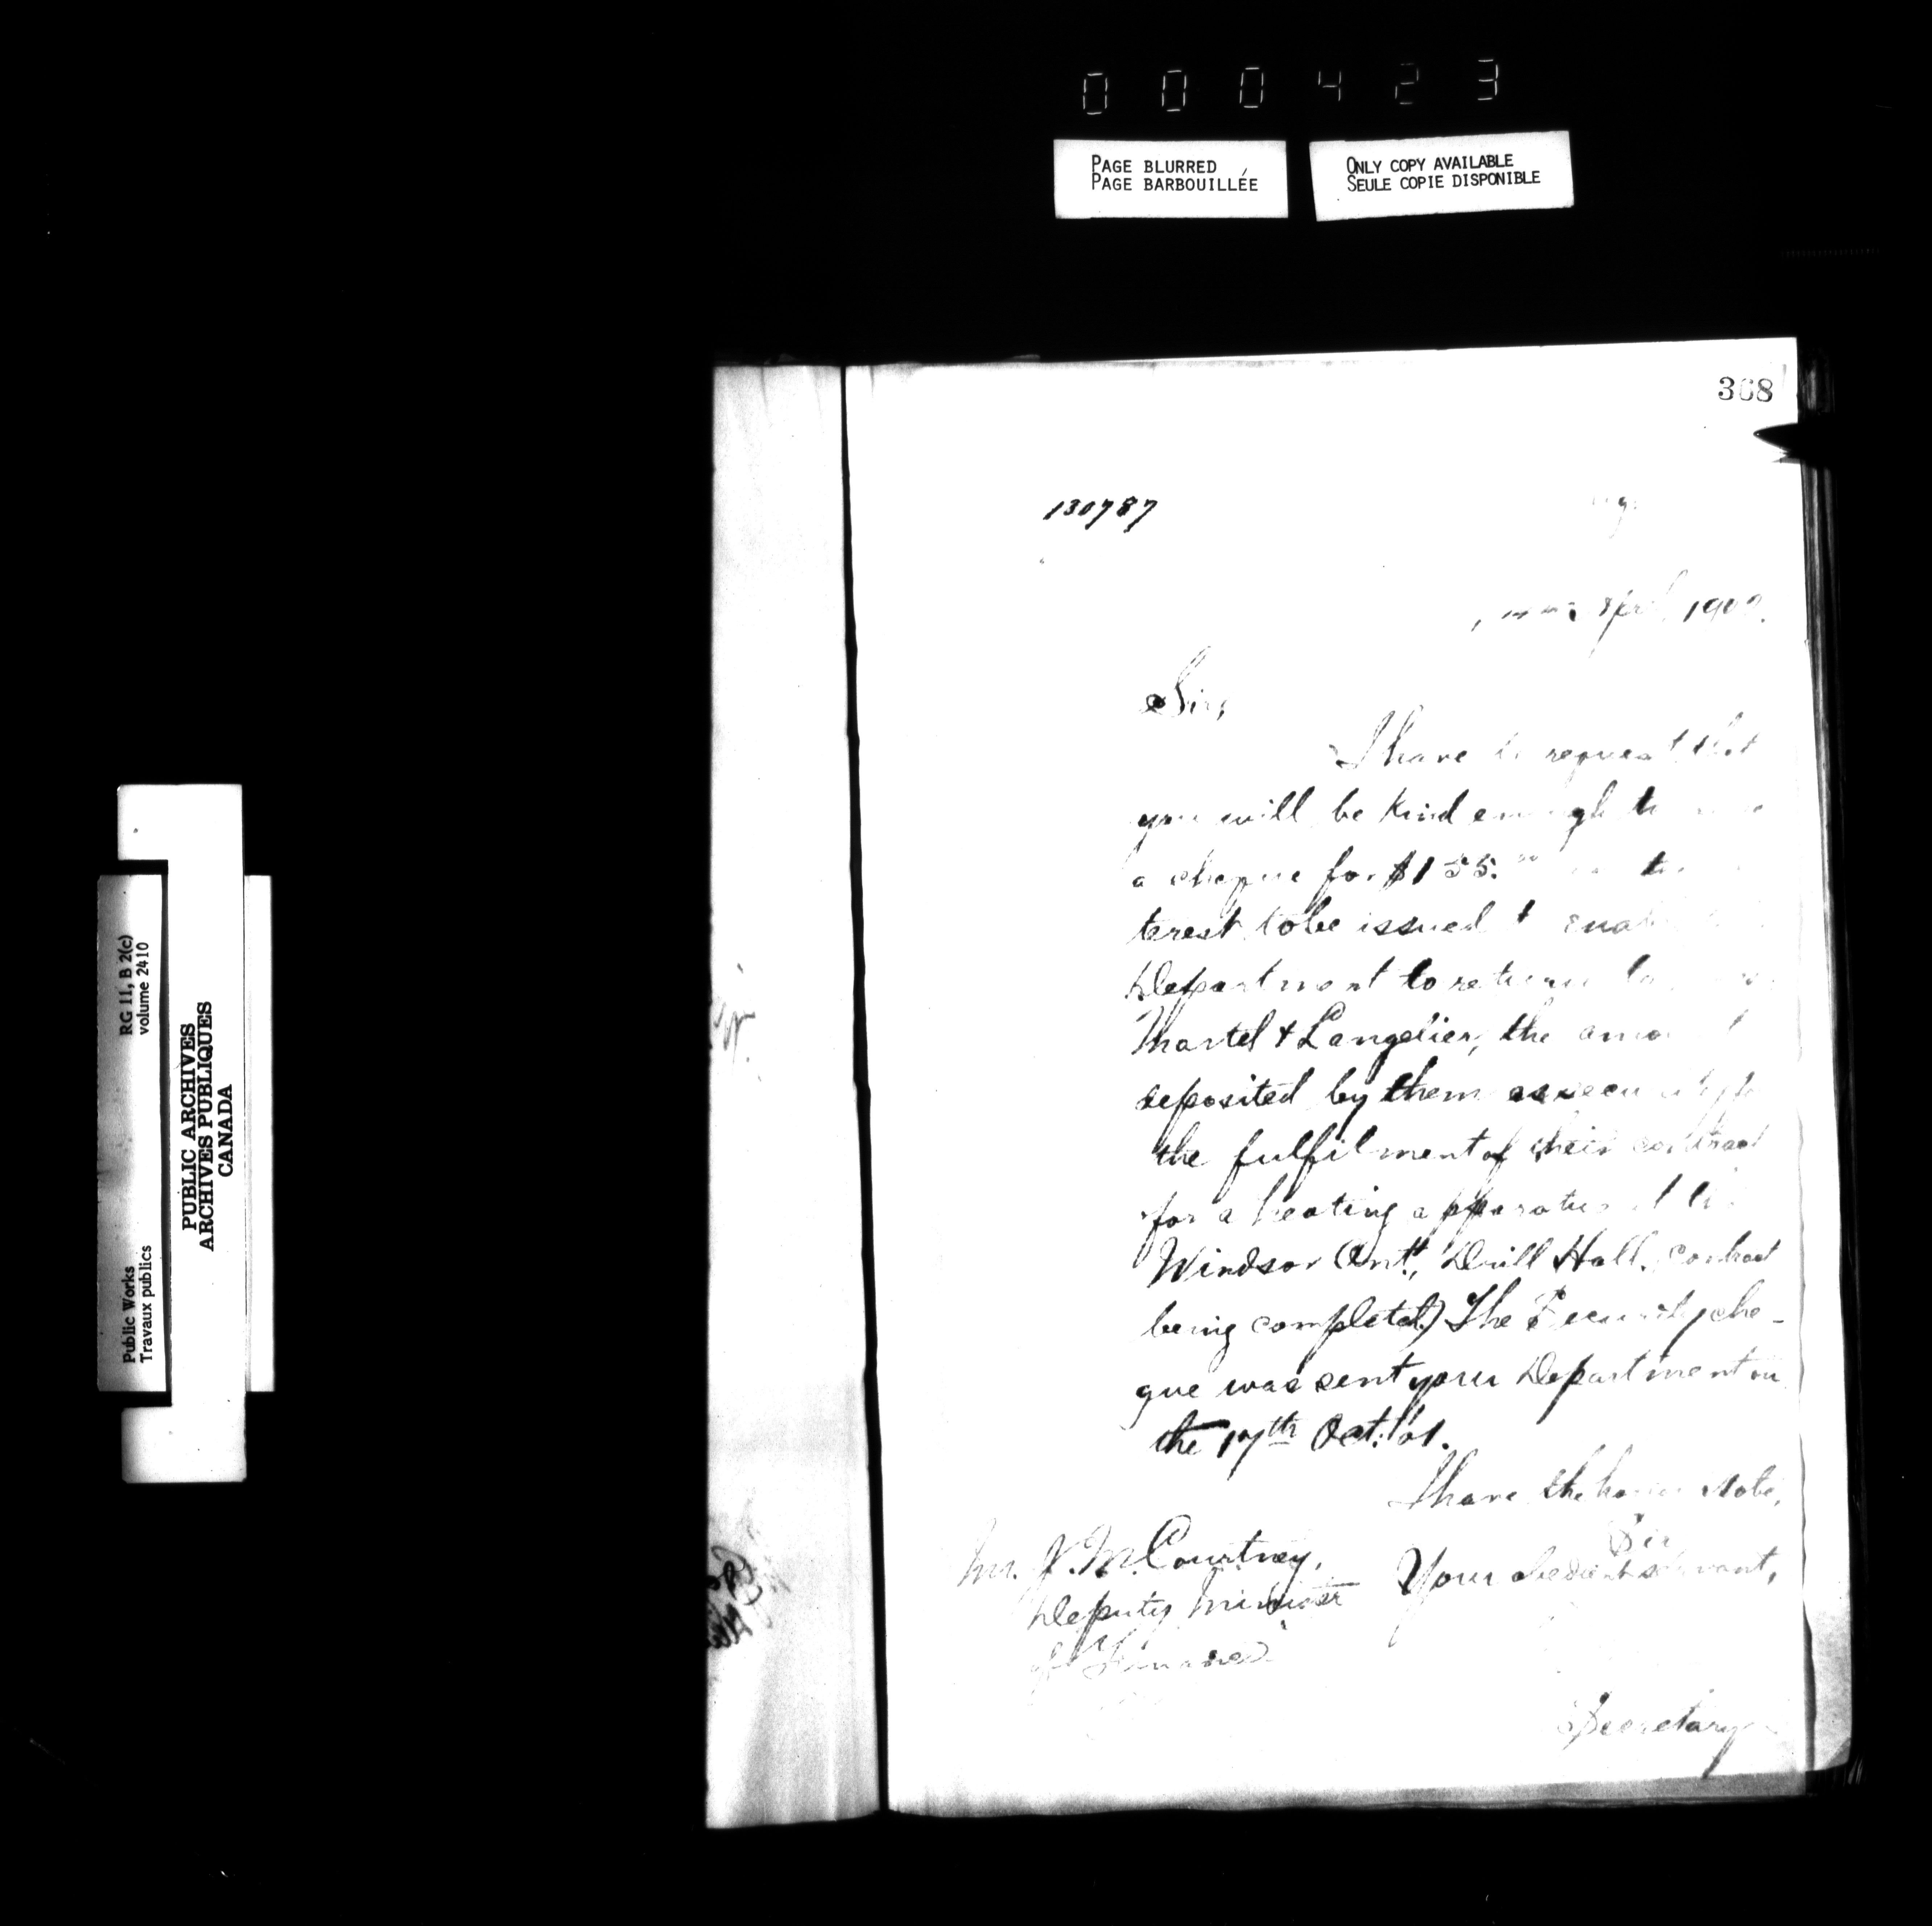 000423
PAGE BLURRED
PAGE BARBOUILLÉE
ONLY COPY AVAILABLE
SEULE COPIE DISPONIBLE
368
130787
April 1902.
Sir,
I have to request that
you will be kind enough to
a cheque for $155.00
terest to be issued to enable
Department to return to
Martel & Langelier, the amount
deposited by them as security for
the fulfilment of their contract
for a heating apparatus at the
Windsor Ont., Drill Hall. contract
being completed) The Security che-
que was sent your Department on
the 17th Oct. '01.
I have the honor to be,
Sir
Your obedient servant,
Mr. J. M. Courtney,
Deputy Minister
of Finance.
Secretary
RG 11, B 2(c)
volume 2410
Public Works
Travaux publics
PUBLIC ARCHIVES
ARCHIVES PUBLIQUES
CANADA